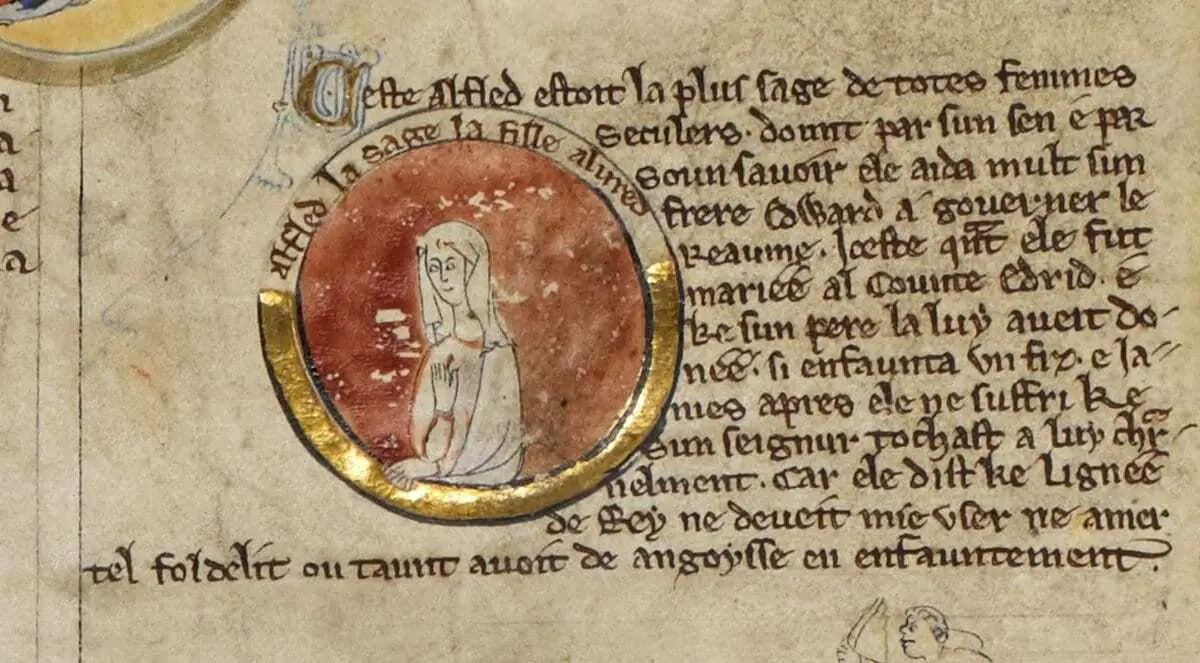 alfled la sage la fille alured
Ceste Alfled estoit la plus sage de totes femmes
seculers. dount par sun sen e par
soun savoir ele aida mult sun
frere Edward a governer le
Reaume. Iceste qnt ele fut
mariee al Counte Edrid. e
ke sun pere la luy aveit do-
nee. si enfaunta un fiz. e ja-
mes apres ele ne suffri ke
sun seignur tochast a luy chr-
nelment. Car ele dist ke lignee
de Rey ne deveit mie user ne amer
tel fol delit ou taunt avoit de angoysse en enfauntement.